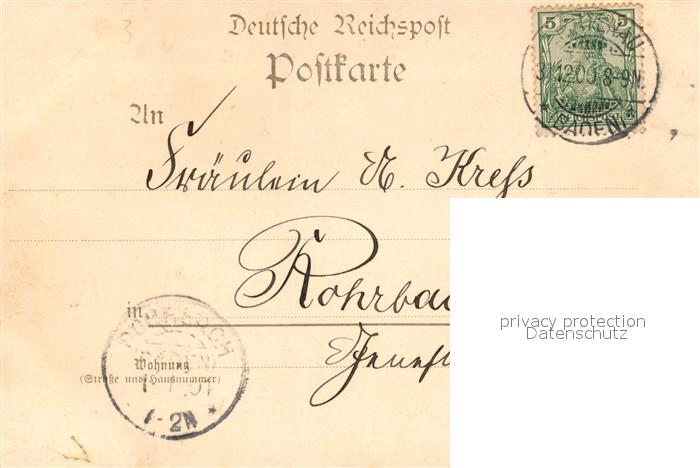 Deutsche Reichspost
Postkarte
5 5
3 12 00 8-9N
BADEN
An
Fräulein N. Kress
Rohrba
in
Wohnung
(Straße und Hausnummer)
1-2N
privacy protection
Datenschutz